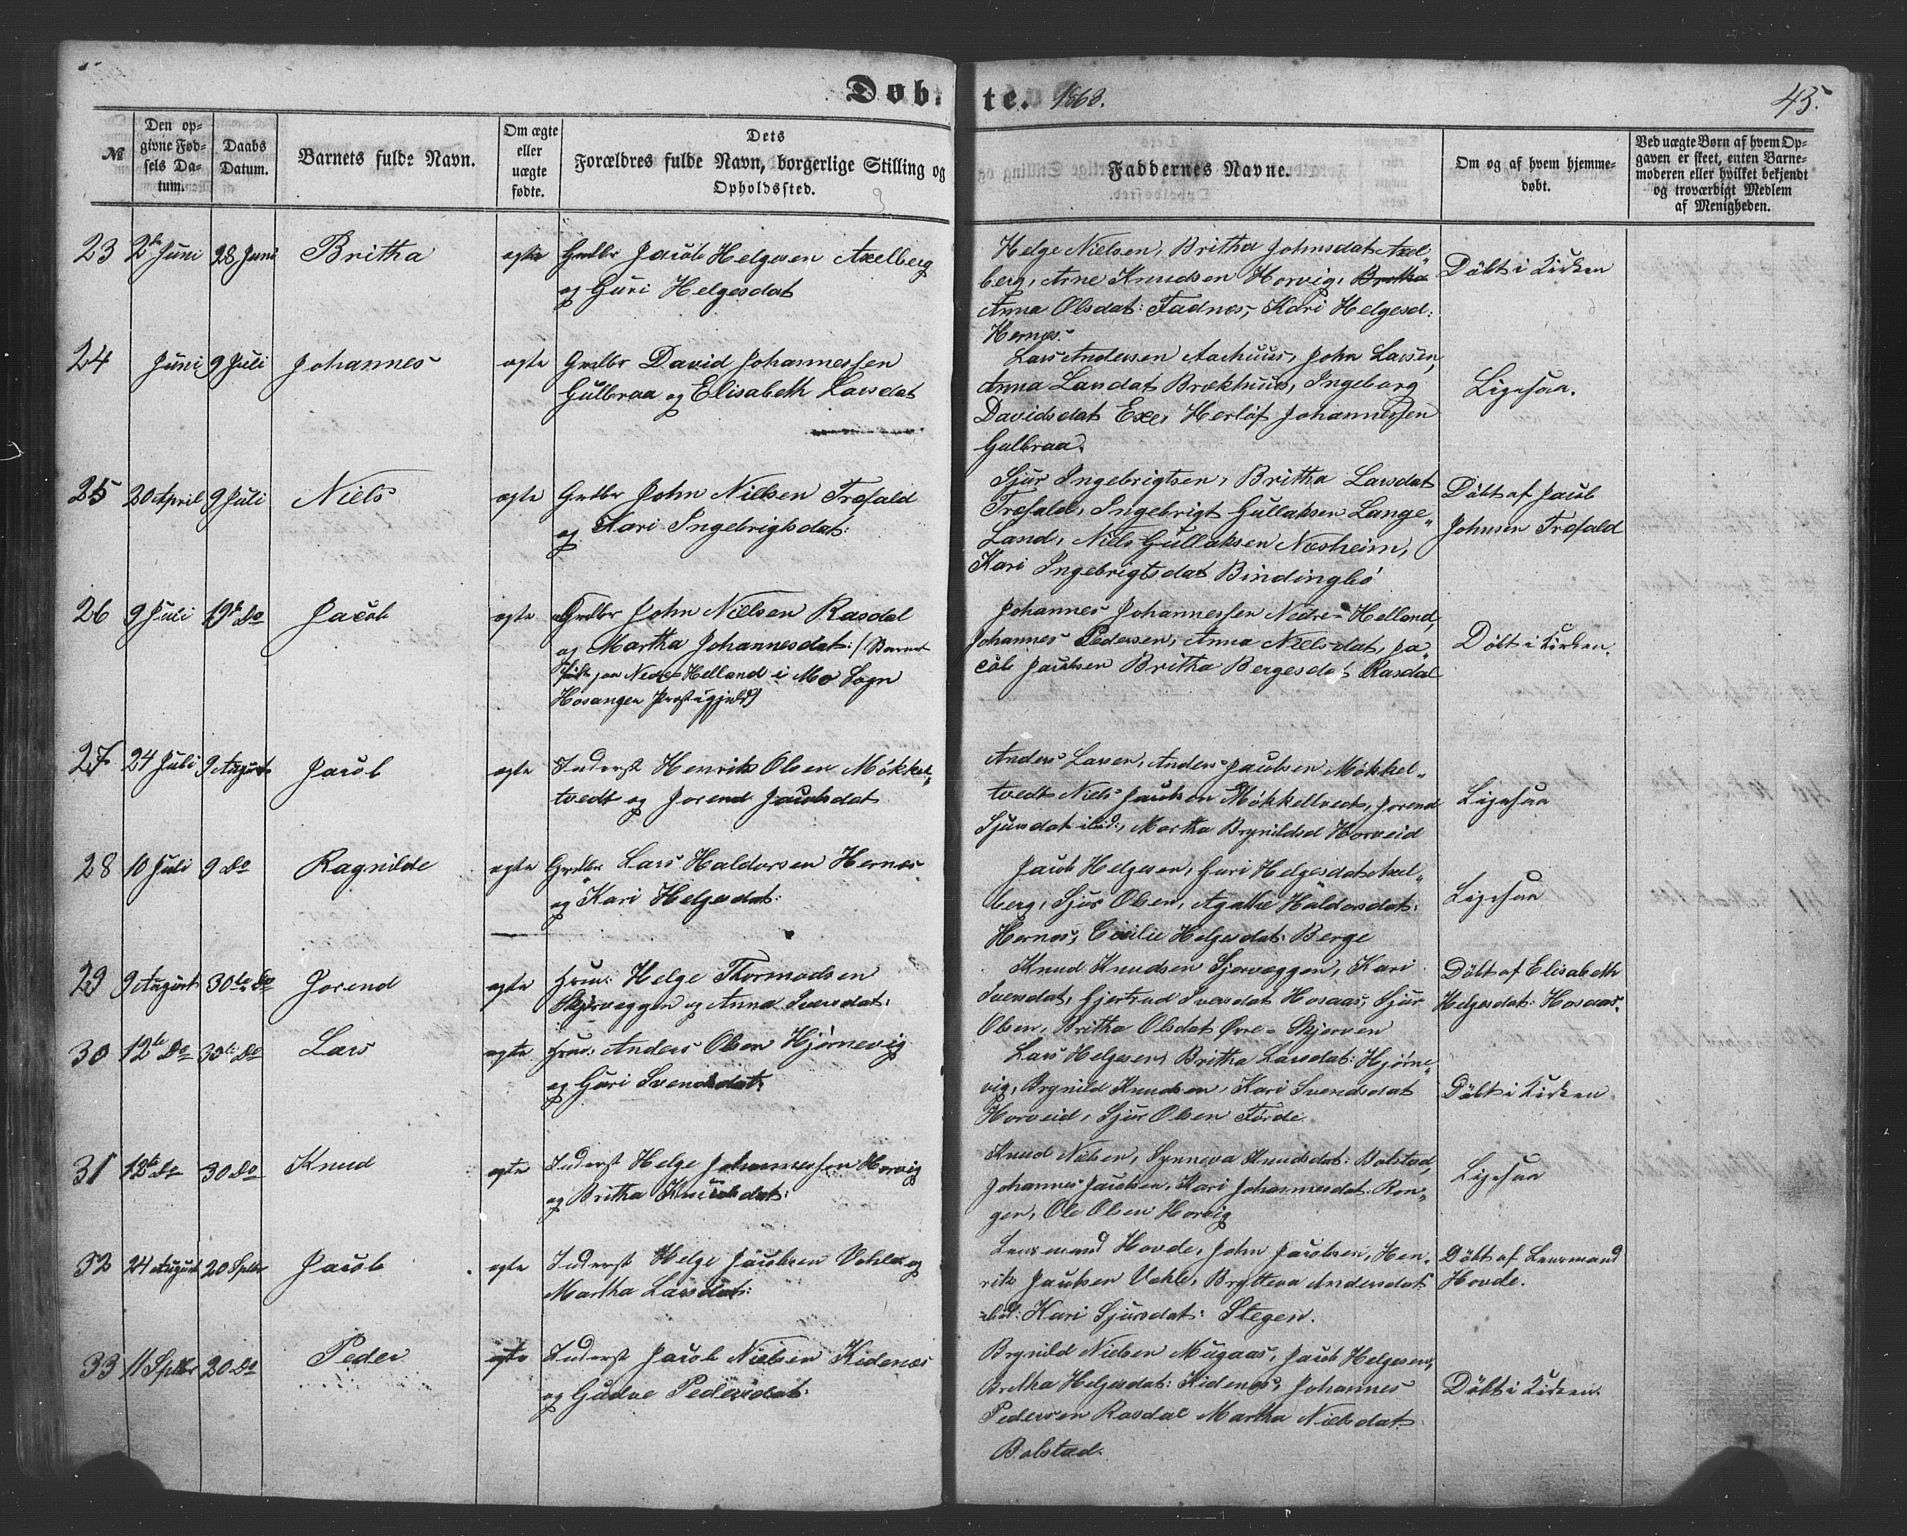 Døb-te. 1868. 45.
№
Den op-
givne Fød-
sels Da-
tum.
Daabs
Datum.
Barnets fulde Navn.
Om ægte
eller
uægte
fødte.
Dets
Forældres fulde Navn, borgerlige Stilling og
Opholdssted.
Faddernes Navne.
Om og af hvem hjemme-
døbt.
Ved uægte Børn af hvem Op-
gaven er skeet, enten Barne-
moderen eller hvilket bekjendt
og troværdigt Medlem
af Menigheden.
23 2de Juni 28 Juni Britha ægte Grdbr Jacob Helgesen Axelberg
og Guri Helgesdat
Helge Nielsen, Britha Johnsdat Axel-
berg, Arne Knudsen Horvig, Britha
Anna Olsdat: Fadnes, Kari Helgesd:
Hernes.
Døbt i Kirken
24 Juni 9 Juli Johannes ægte Grdbr David Johannessen
Gulbraa og Elisabeth Larsdat
Lars Andersen Aarhuus, John Larsen,
Anna Larsdat Brækhuus, Ingeborg
Davidsdat Exe, Herlof Johannessen
Gulbraa.
Ligesaa.
25 20 April 9 Juli Niels ægte Grdbr John Nielsen Træfald
og Kari Ingebrigtsdat:
Sjur Ingebrigtsen, Britha Larsdat
Træfald, Ingebrigt Gullaksen Lange-
Land, Niels Gullaksen Næsheim,
Kari Ingebrigtsdat Bindingbø
Døbt af Jacob
Johnsen Træfald
26 9 Juli 19de Do Jacob ægte Grdbr John Nielsen Rasdal
og Martha Johannesdat: /Barnet
født paa Nedre-Helland i Mo Sogn
Hosanger Præstegjeld)
Johannes Johannessen Nedre-Helland,
Johannes Pedersen, Anna Nielsdat, Ja-
cob Jacobsen Britha Bergesdat Rasdal
Døbt i Kirken.
27 24 Juli 9 August Jacob ægte Inderst Henrik Olsen Møkkel-
tvedt og Jorend Jacobsdat
Anders Larsen, Anders Jacobsen Møkkel-
tvedt Niels Jacobsen Møkkeltvedt, Jorend
Sjursdat ibid:, Martha Brynildsd Horveid
Ligesaa
28 10 Juli 9 Do Ragnilde ægte Grdbr Lars Haldorsen Hernes
og Kari Helgesdat:
Jacob Helgesen, Guri Helgesdat Axel-
berg, Sjur Olsen, Agathe Haldorsdat:
Hernes, Cecilie Helgesdat: Berge
Ligesaa
29 9 August 30te Do Jorend ægte Huus: Helge Thormodsen
Skjerveggen og Anna Iversdat:
Knud Knudsen Sjerveggen, Kari
Iversdat, Gjertrud Iversdat Hosaas, Sjur
Olsen, Britha Olsdat Øvre-Skjerven
Døbt af Elisabeth
Helgesdat: Hosaas.
30 12te Do 30te Do Lars ægte Huus: Anders Olsen Hjørnevig
og Guri Svendsdat:
Lars Helgesen, Britha Larsdat: Hjørne-
vig, Brynild Knudsen, Kari Svendsdat
Horveid, Sjur Olsen Førde
Døbt i Kirken
31 13de Do 30 Do Knud ægte Inderst Helge Johannessen Horvig
og Britha Knudsdat:
Knud Nielsen, Synneva Knudsdat: Bolstad,
Johannes Jacobsen, Kari Johannesdat: Ron-
gen, Ole Olsen Horvig
Ligesaa
32 24 August 20 Sptbr Jacob ægte Inderst Helge Jacobsen Vahle og
Martha Larsdat:
Lensmand Hovde, John Jacobsen, Hen-
rik Jacobsen Vahle, Brytteva Andersdat
ibid: Kari Sjursdat: Stegen.
Døbt af Lensmand
Hovde.
33 11 Sptbr 20 Do Peder ægte Inderst Jacob Nielsen Kidenæs
og Gudve Pedersdat:
Brynild Nielsen Mugaas, Jacob Helgesen,
Britha Helgesdat: Kidenes, Johannes
Pedersen Rasdal Martha Nielsdat:
Bolstad.
Døbt i Kirken.